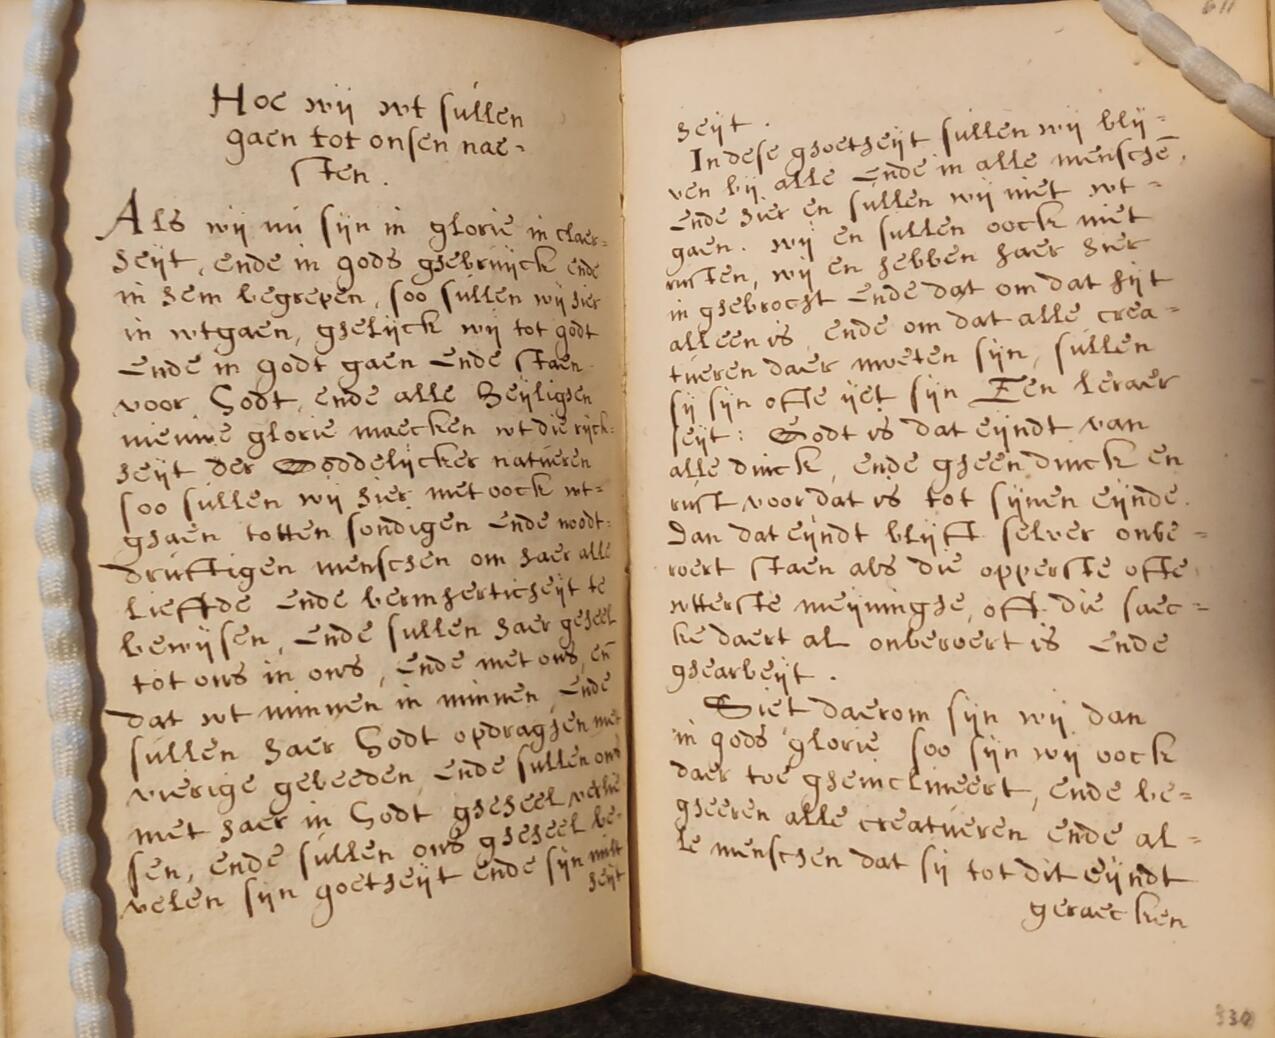 Hoe wij wt sullen
gaen tot onsen nae-
sten.
Als wij nu sijn in glorie in claer=
heijt, ende in gods ghebruijck ende
in hem begrepen, soo sullen wij hier
in wtgaen, ghelijck wij tot godt
Ende in godt gaen Ende staen
voor Godt, ende alle heijlighen
nieuwe glorie maecken wt die rijck=
heijt der Goddelijcker natueren
soo sullen wij hier met oock wt=
ghaen totten sondigen Ende noodt=
druftigen menschen om haer alle
Liefde Ende bermherticheijt te
bewijsen, Ende sullen haer geheel
tot ons in ons, Ende met ons, en
dat wt minnen in minnen, Ende
sullen haer Godt opdraghen met
vierige gebeeden, Ende sullen ons
met haer in Godt gheheel verlie
sen, ende sullen ons gheheel be-
velen sijn goetheijt ende sijn milt
heijt
611
heijt.
In dese ghoetheijt sullen wij blij=
ven bij alle Ende in alle mensche,
Ende hier en sullen wij niet wt=
gaen. wij en sullen oock niet
rusten, wij en hebben haer hier
in ghebrocht Ende dat om dat hijt
alleen is, ende om dat alle crea=
tueren daer moeten sijn, sullen
sij sijn ofte ijet sijn Een leraer
seijt: Godt is dat eijndt van
alle dinck, ende gheen dinck en
rust voor dat is tot sijnen eijnde.
Dan dat eijndt blijft selver onbe=
roert staen als die opperste ofte
wtterste meijninghe, oft die saec=
ke daert al onberoert is Ende
ghearbeijt.
Siet daerom sijn wij dan
in gods glorie soo sijn wij oock
daer toe gheinclineert, ende be=
gheeren alle creatueren ende al=
le menschen dat sij tot dit eijndt
geraecken